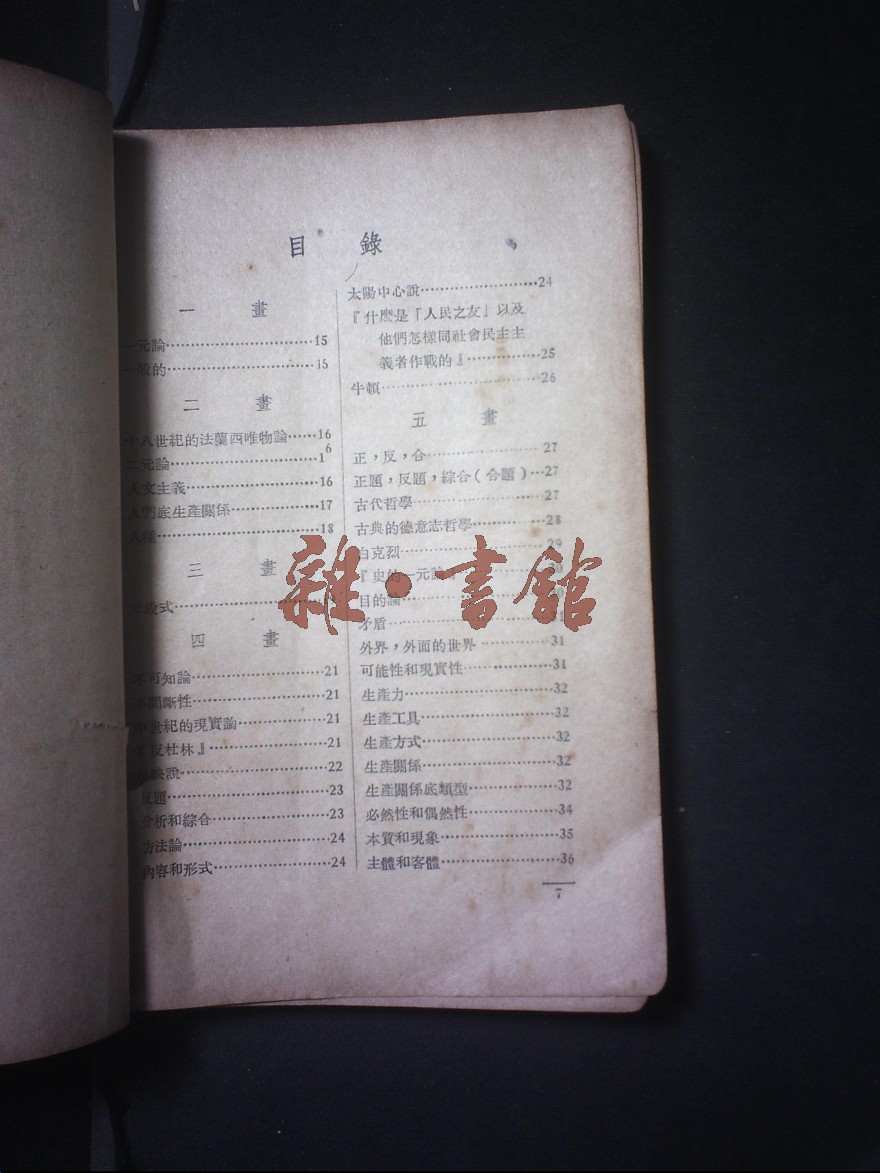 目錄
一畫
一元論 15
一般的 15
二畫
十八世紀的法蘭西唯物論 16
二元論 16
人文主義 16
人們底生產關係 17
人 18
三畫
式
四畫
不可知論 21
不間斷性 21
中世紀的現實論 21
『反杜林』 21
反映說 22
反題 23
分析和綜合 23
方法論 24
內容和形式 24
太陽中心說 24
『什麽是「人民之友」以及
他們怎樣同社會民主主
義者作戰的』 25
牛頓 26
五畫
正，反，合 27
正題，反題，綜合（合題） 27
古代哲學 27
古典的德意志哲學 28
白克烈 29
『史的一元論』
目的論
矛盾 31
外界，外面的世界 31
可能性和現實性 31
生產力 32
生產工具 32
生產方式 32
生產關係 32
生產關係底類型 32
必然性和偶然性 34
本質和現象 35
主體和客體 36
7
雜·書館